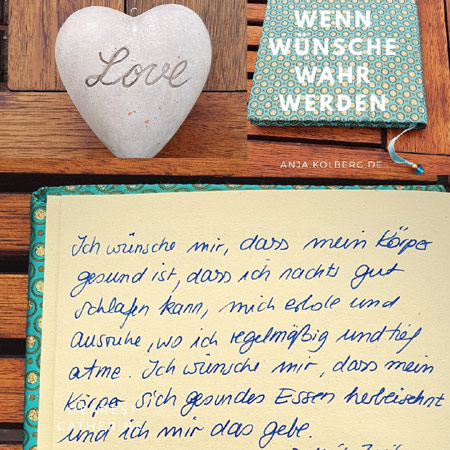 Love
WENN
WÜNSCHE
WAHR
WERDEN
ANJA KOLBERG.DE
Ich wünsche mir, dass mein Körper
gesund ist, dass ich nachts gut
schlafen kann, mich erhole und
ausruhe, wo ich regelmäßig und tief
atme. Ich wünsche mir, dass mein
Körper sich gesundes Essen herbeisehnt
und ich mir das gebe.